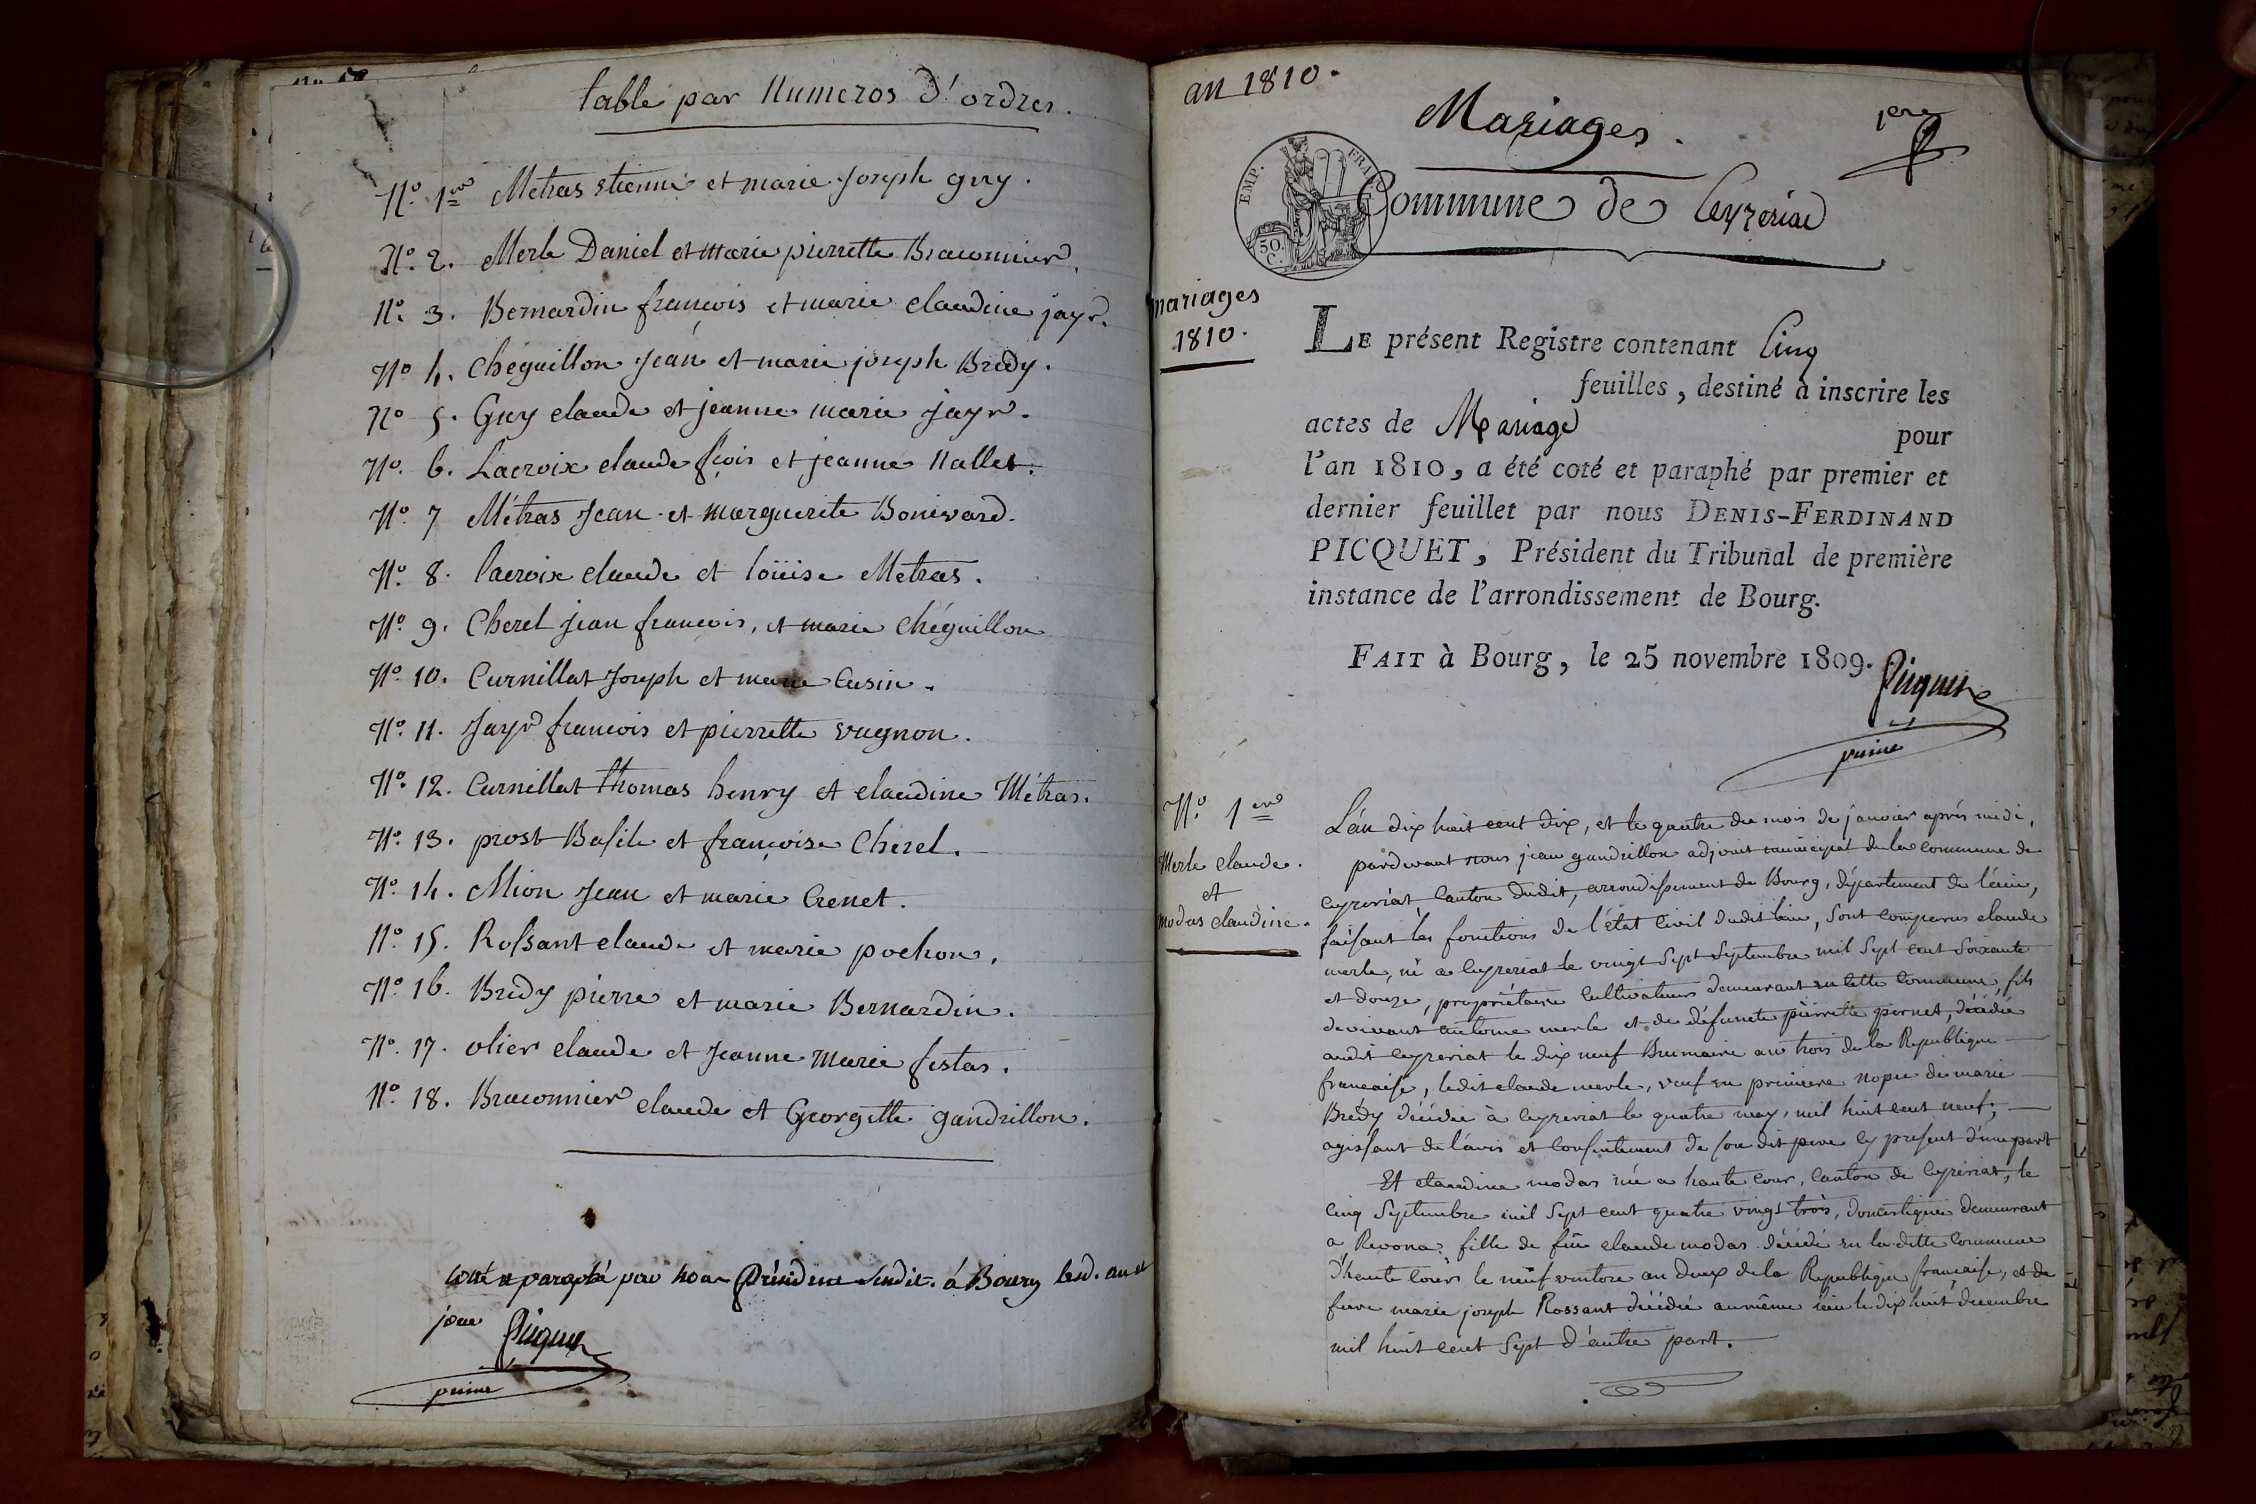 Table par Numeros d'ordres.
N.º 1.er Métras etienne et marie Joseph guy.
N.º 2. Merle Daniel et marie pierrette Braconnier.
N.º 3. Bernardin françois et marie claudine jayr.
N.º 4. Chéguillon Jean et marie joseph Brédy.
N.º 5. Guy claude et jeanne marie jayr.
N.º 6. Lacroix claude fçois et jeanne Nallet.
N.º 7 Métras Jean et marguerite Bonivard.
N.º 8. lacroix claude et loüise Metras.
N.º 9. Cherel jean françois, et marie chéguillon
N.º 10. Curnillat Joseph et marie Cusin.
N.º 11. Jayr françois et pierrette vugnon.
N.º 12. Curnillat Thomas henry et claudine Métras.
N.º 13. prost Basile et françoise Cherel.
N.º 14. Mion Jean et marie Crenet.
N.º 15. Rossant claude et marie pochon.
N.º 16. Brédy pierre et marie Bernardin.
N.º 17. olier claude et Jeanne Marie festas.
N.º 18. Braconnier claude et Georgette gandrillon.
Cotté et paraphé par nous Président susdit. á Bourg lesd. an et
jour Picquet
an 1810.
Mariages.
1er
EMP. FRAN.
50. C.
Commune de Ceyzeriat
mariages
1810.
LE présent Registre contenant Cinq
feuilles, destiné à inscrire les
actes de Mariage pour
l'an 1810, a été coté et paraphé par premier et
dernier feuillet par nous DENIS-FERDINAND
PICQUET, Président du Tribunal de première
instance de l'arrondissement de Bourg.
FAIT à Bourg, le 25 novembre 1809.
Picquet
N.º 1er
Merle claude.
et
modas claudine.
L'an dix huit cent dix, et le quatre du mois de janvier après midi,
pardevant nous jean gandrillon adjoint municipal de la commune de
ceyzeriat, Canton dudit, arrondissement de Bourg, département de l'ain,
faisant les fonctions de l'état Civil dudit lieu, sont comparus claude
merle, né a ceyzeriat le vingt sept septembre mil sept cent soixante
et douze, propriétaire cultivateur demeurant en cette commune, fils
de vivant antoine merle et de défuncte pierrette pernet, décédée
audit ceyzeriat le dix neuf Brumaire an trois de la Republique
française, ledit claude merle, veuf en premiere nopce de marie
Brédy décédée à ceyzeriat le quatre may, mil huit cent neuf,
agissant de l'avis et consentement de son dit pere cy present d'une part
Et claudine modas née a haute cour, canton de ceyzériat, le
cinq septembre mil sept cent quatre vingt trois, domestique demeurant
a Revona, fille de feu claude modas décédé en la ditte commune
d'haute cour le neuf ventose an deux de la Republique française, et de
feue marie joseph Rossant décédée au même lieu le dix huit decembre
mil huit cent sept d'autre part.